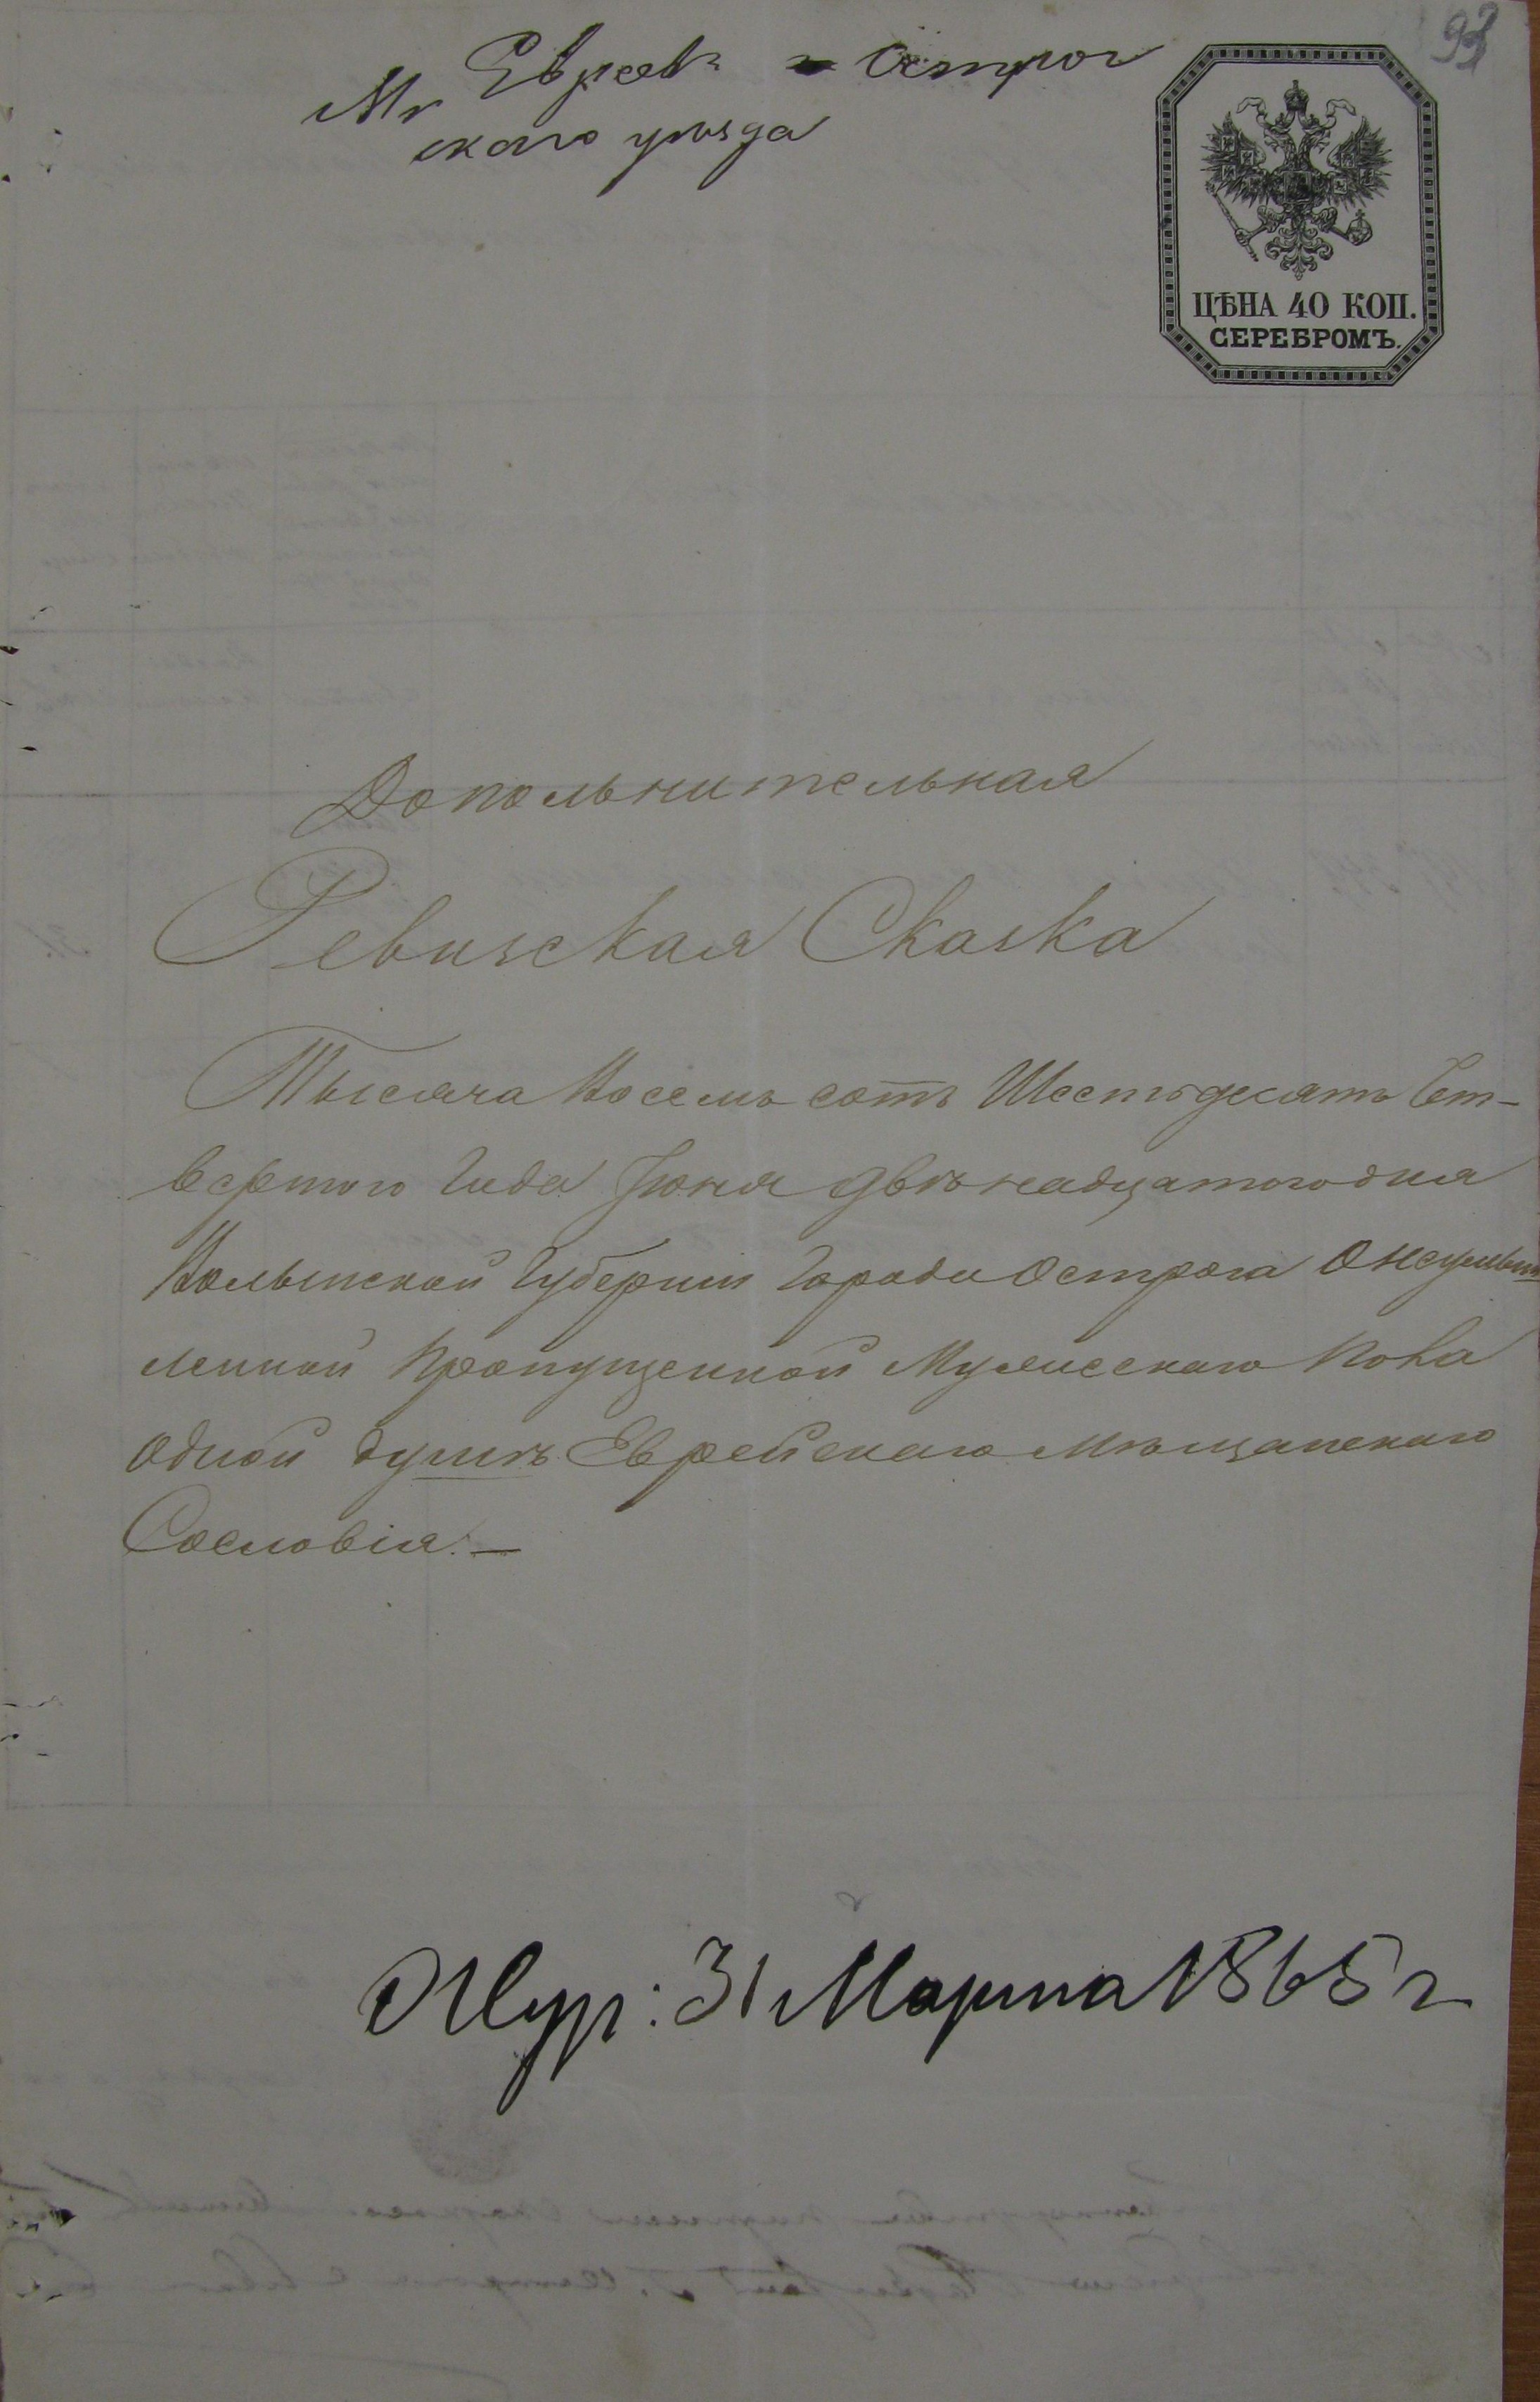 93
Мѣ Евреевъ Острог
скаго уѣзда
ЦѢНА 40 КОП.
СЕРЕБРОМЪ.
Допольнительная
Ревизская Сказка
Тысяча Восемь сотъ Шестьдесятъ Чет-
вертого Года Іюня двѣнадцатого дня
Волынской Губерніи Города Острога О
ленной Пропущенной Мужескаго Пола
Одной душѣ Еврейскаго Мѣщанскаго
Сословія. —
Жур: 31 Марта 1865 г